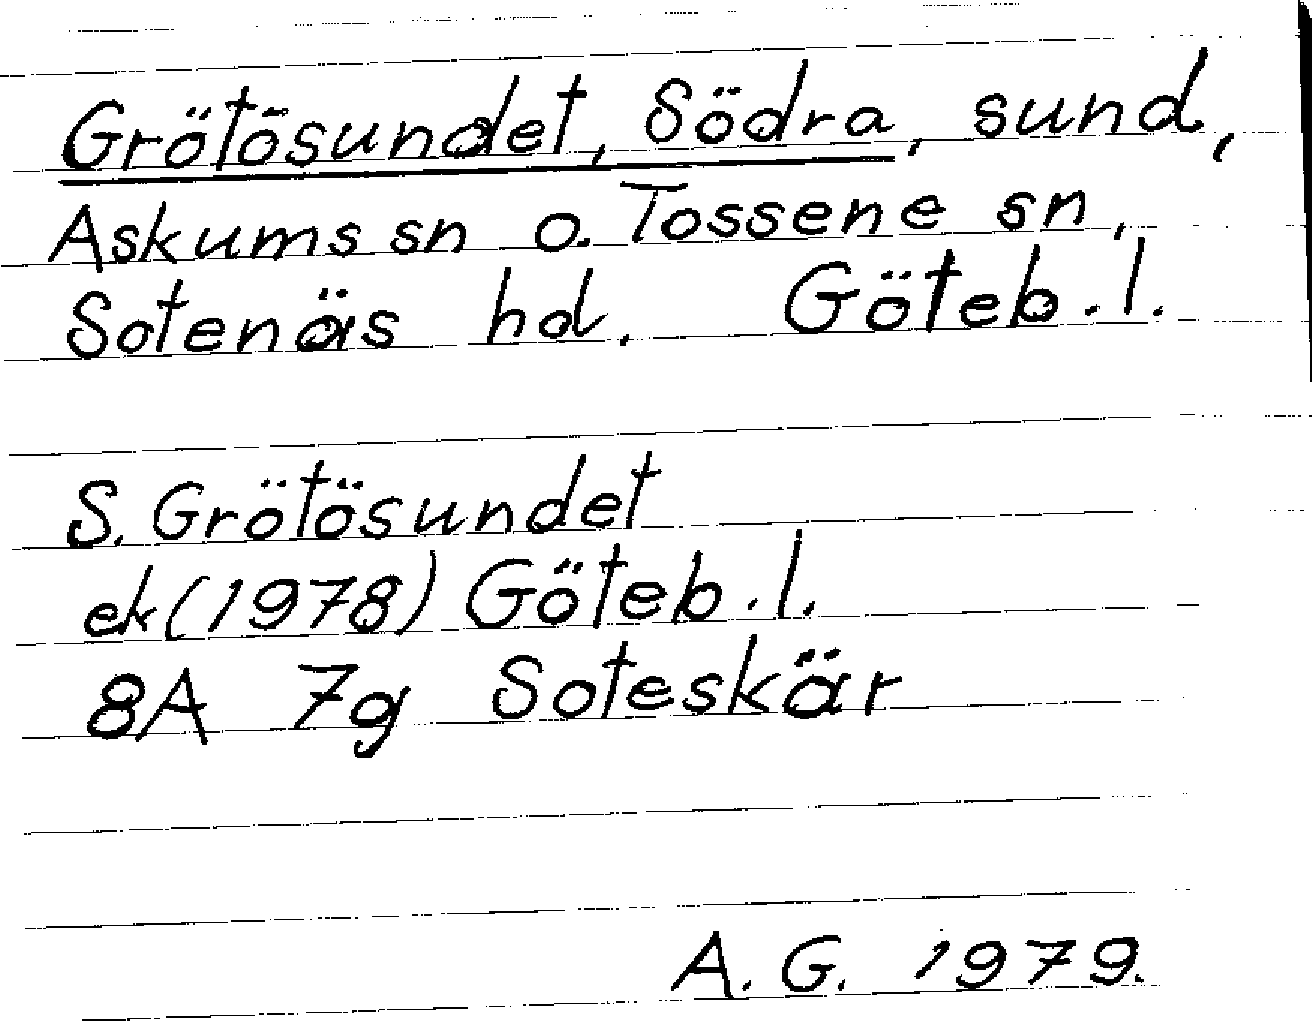 Grötösundet, Södra, sund,
Askums sn o. Tossene sn,
Sotenäs hd. Göteb. l.
S. Grötösundet
ek (1978) Göteb. l.
8A 7g Soteskär
A. G. 1979.